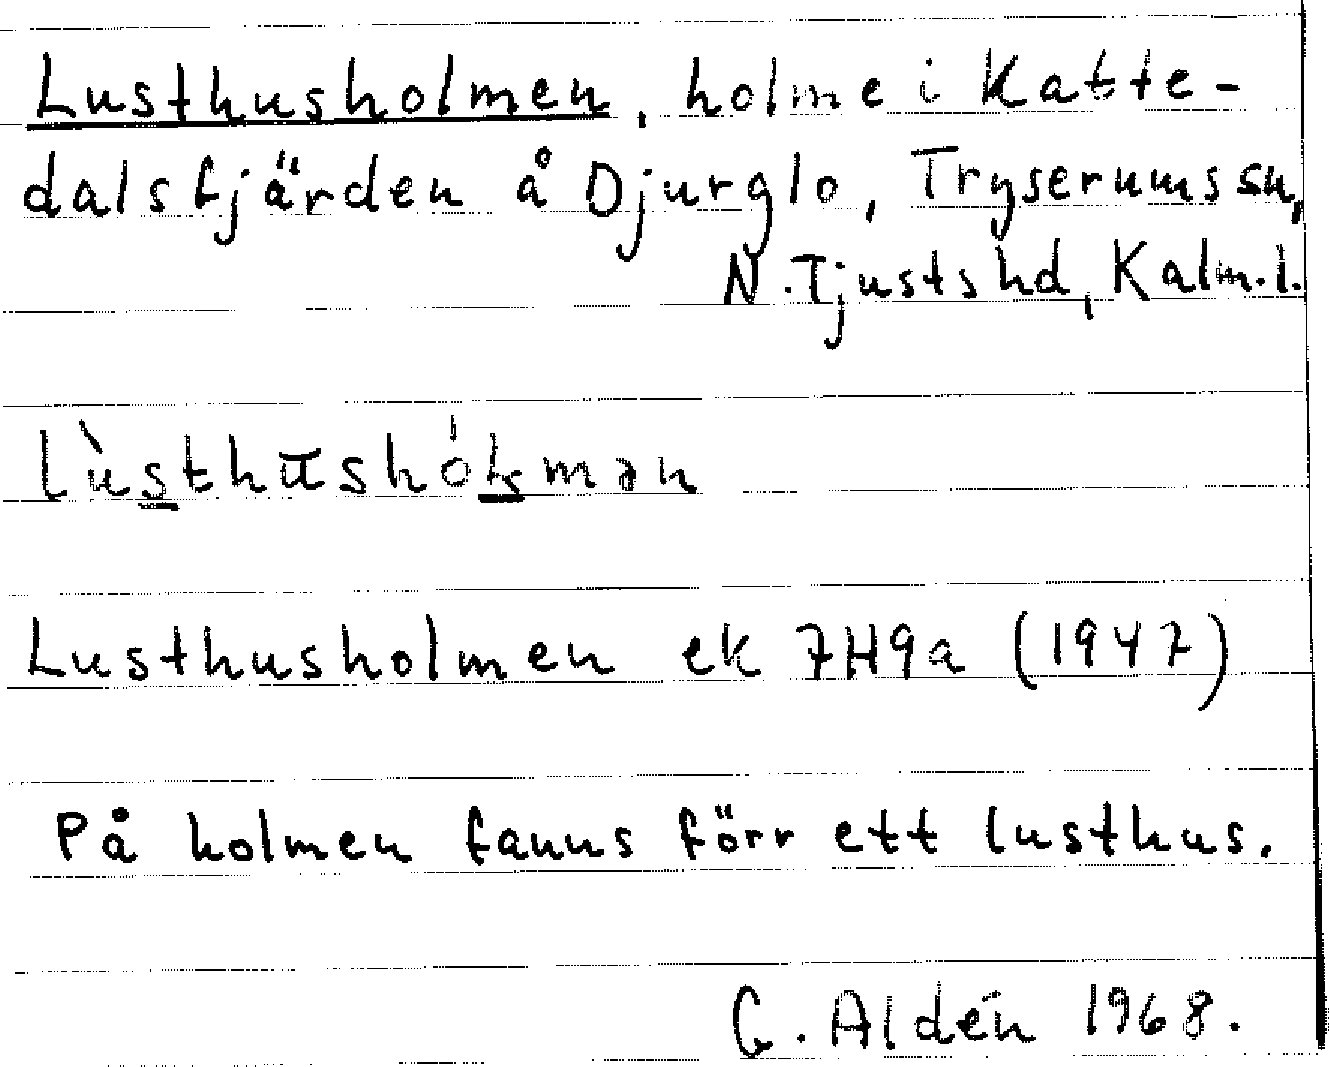 Lusthusholmen, holme i Katte-
dalsfjärden å Djurglo, Tryserums sn,
N. Tjusts hd, Kalm.l.
Lusthusholmen ek 7H9a (1947)
På holmen fanns förr ett lusthus.
G. Aldén 1968.